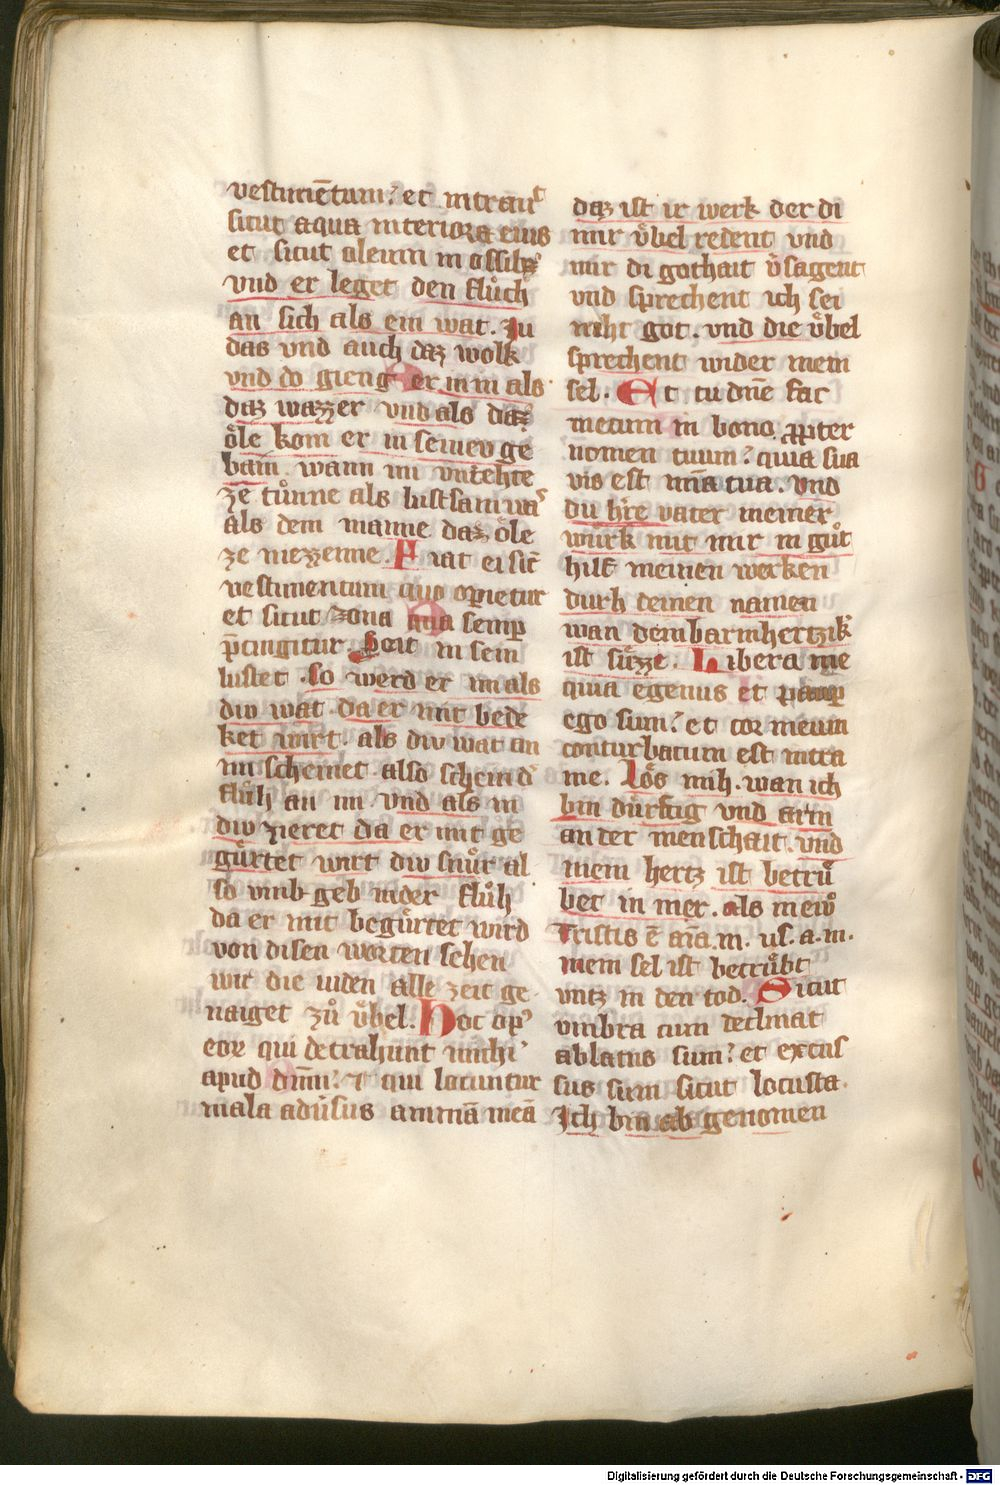 vestimētum? et intrauͥt
sicut aqua interiora eius
et sicut oleum in ossibꝫ
vnd er leget den flůch
an sich als ein wat. Ju
das vnd auch daz wolk
vnd do gieng er in in als
daz wazzer vnd als daz
ǒle kom er in seinev ge
bain. wann im vntehte
ze tůnne als lustsam wͣs
als dem manne daz ǒle
ze niezzenne. Fiat ei sic̄
vestimentum quo opietur
et sicut zona qua semp
p̄cingitur. Seit in sein
lustet. so werd er im als
div wat da er mit bede
ket wirt. als div wat an
im scheinet also schein d͛
flůh an im vnd als in
div zieret da er mit ge
gu̇rtet wirt div snůr al
so vmb geb in der flůh
da er mit begu̇rtet wird
von disen worten sehen
wir die iuden alle zeit ge
naiget zů v̇bel. Hoc op͛
eor qui detrahunt michi
apud dn̄m? ⁊ qui locuntur
mala adu͛sus animā meā
daz ist ir werk der di
mir v̇bel redent vnd
mir di gothait v͛sagent
vnd sprechent ich sei
niht got. vnd die v̇bel
sprechent wider mein
sel. Et tu dn̄e fac
mecum in bono ꝓpter
nomen tuum? quia sua
vis est mīa tua. vnd
du hr̄e vater meiner
würk mit mir in gůt
hilf meinen werken
durh deinen namen
wan dein barmhertzik͛
ist süzze. Libera me
quia egenus et paup
ego sum? et cor meum
conturbatum est intra
me. Lǒs mih. wan ich
bin du̇rftig vnd arm
an der menschait. vnd
mein hertz ist betrů
bet in mer. als mewͦ
Tristis ē aīa. m. us. a. m.
mein sel ist betrůbt
vntz in den tod. Sicut
vmbra cum declinat
ablatus sum? et excus
sus sum sicut locusta.
Ich bin ab genomen
Digitalisierung gefördert durch die Deutsche Forschungsgemeinschaft - DFG